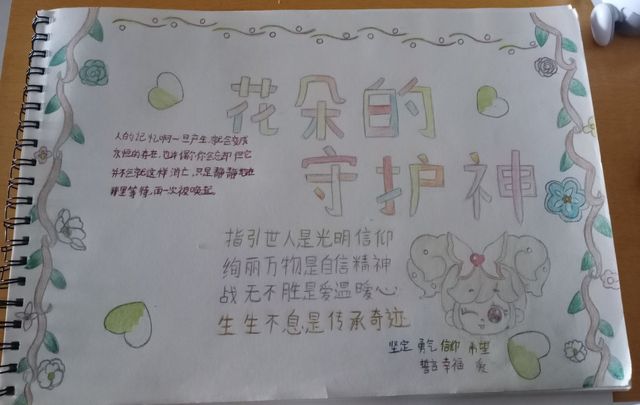 花朵的
守护神
人的记忆啊一旦产生,就会变成
永恒的存在,也许偶尔会忘却,但它
并不会就这样消亡,只是静静地在
那里等待,再一次被唤起
指引世人是光明信仰
绚丽万物是自信精神
战无不胜是爱温暖心
生生不息是传承奇迹
坚定 勇气 信仰 希望
誓言 幸福 爱